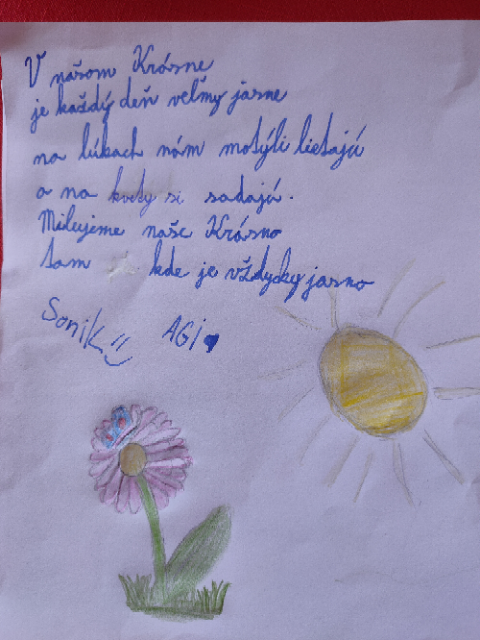 V našom Krásne
je každý deň veľmy jasne
na lúkach nám motýli lietajú
a na kvety si sadajú.
Milujeme naše Krásno
tam kde je vždycky jasno
Sonik AGI